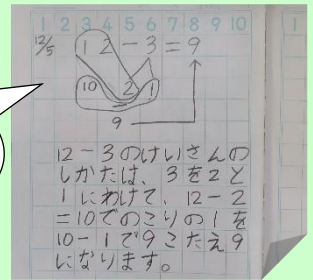 1 2 3 4 5 6 7 8 9 10
12/5
12-3=9
10 2 1
9
12-3のけいさんの
しかたは、3を2と
1にわけて、12-2
=10でのこりの1を
10-1で9こたえ9
になります。